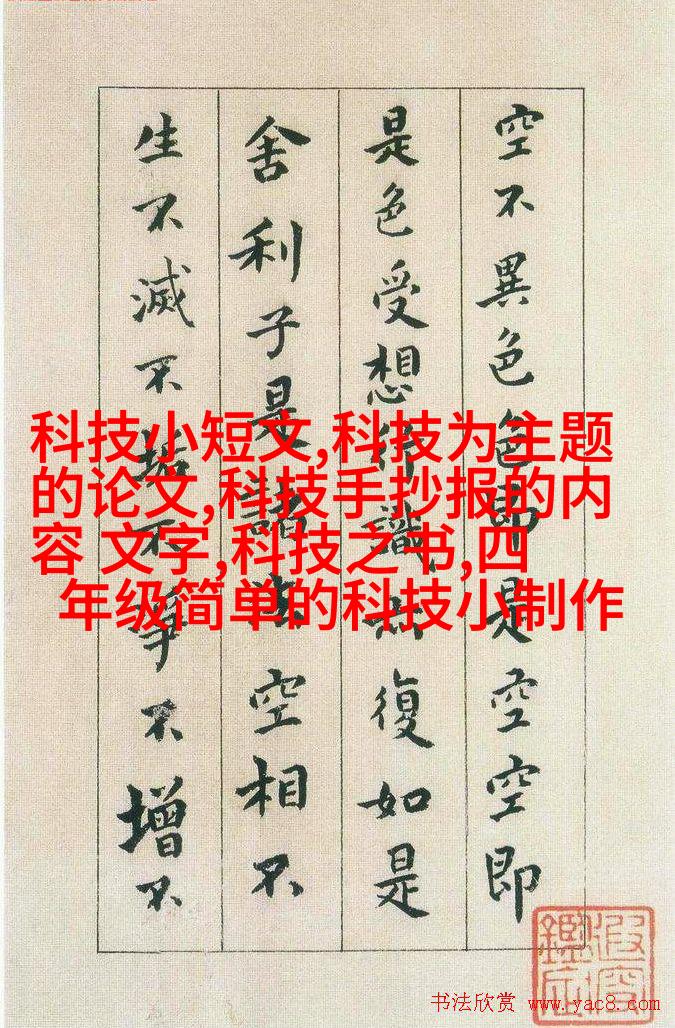 空不異色色即是空空即
是色受想行識亦復如是
舍利子是諸法空相不
生不滅不垢不淨不增不
科技小短文,科技为主题
的论文,科技手抄报的内
容 文字,科技之书,四
年级简单的科技小制作
书法欣赏 www.yac8.com